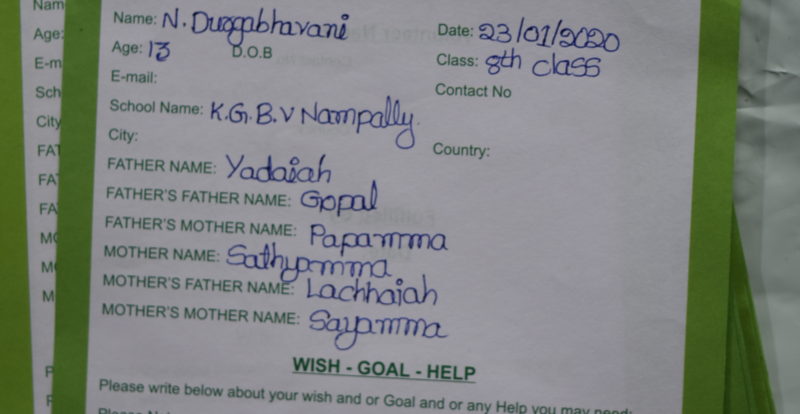 Nam
Name: N. Durgabhavani Date: 23/01/2020
Age:
Age: 13 D.O.B Class: 8th class
E-m
E-mail: Contact No
Sch
School Name: K.G.B.V Nampally.
City
City: Country:
FAT
FATHER NAME: Yadaiah
FA
FATHER'S FATHER NAME: Gopal
FA
FATHER'S MOTHER NAME: Papamma
MO
MOTHER NAME: Sathyamma
M
MOTHER'S FATHER NAME: Lachhaiah
M
MOTHER'S MOTHER NAME: Sayamma
WISH - GOAL - HELP
P
Please write below about your wish and or Goal and or any Help you may need: